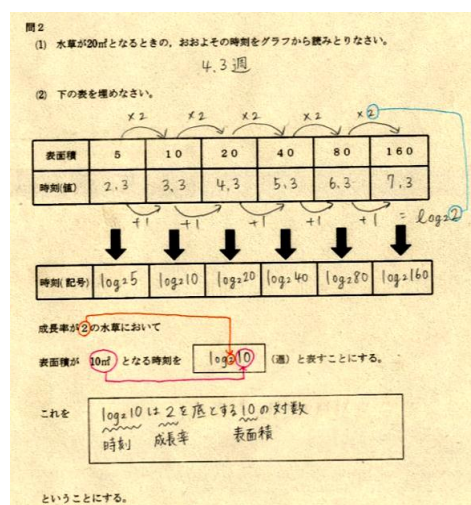 問2
(1) 水草が20㎡となるときの、おおよその時刻をグラフから読みとりなさい。
4.3週
(2) 下の表を埋めなさい。
×2 ×2 ×2 ×2 ×2
表面積 5 10 20 40 80 160
時刻(値) 2.3 3.3 4.3 5.3 6.3 7.3
+1 +1 +1 +1 +1 = log₂2
時刻(記号) log₂5 log₂10 log₂20 log₂40 log₂80 log₂160
成長率が2の水草において
表面積が 10㎡ となる時刻を log₂10 (週)と表すことにする。
これを log₂10は2を底とする10の対数
時刻 成長率 表面積
ということにする。